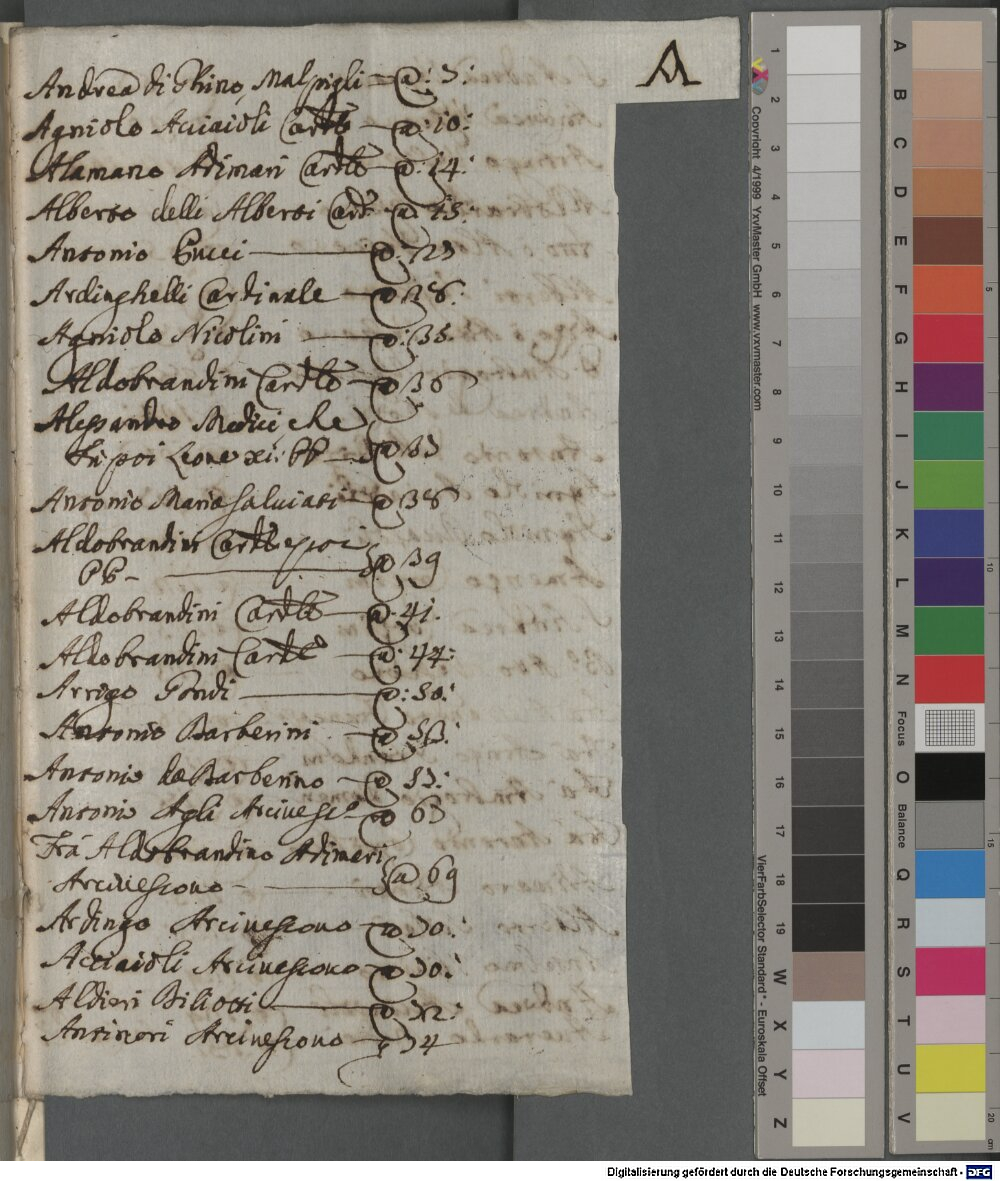 A
Andrea di Ghino Malpigli @: 5:
Agniolo Acciaioli Cardle @: 10:
Alamano Adimari Cardle @: 14:
Alberto delli Alberti Card @ 15:
Antonio Pucci @:
Ardinghelli Cardinale @ 28:
Agniolo Nicolini @: 35.
Aldobrandini Cardle @ 36
Alessandro Medici che
Fu poi Leone xi: PP @
Antonio Maria Salviati @ 38
Aldobrandini Cardle e poi
PP @ 39
Aldobrandini Cardle @: 41.
Aldobrandini Cardle @: 44:
Arrigo Gondi @: 50:
Antonio Barberini @ 53:
Antonio da Barberino @
Antonio Agli Arcivesco @ 63
Fra Aldobrandino Adimari
Arcivescovo @ 69
Ardingo Arcivescovo @ 70:
Acciaioli Arcivescovo @ 70:
Aldieri Biliotti @ 72:
Antinori Arcivescovo @ 74
Copyright 4/1999 YxyMaster GmbH www.yxymaster.com
VierFarbSelector Standard* - Euroskala Offset
1
2
3
4
5
6
7
8
9
10
11
12
13
14
15
16
17
18
19
W
X
Y
Z
A
B
C
D
E
F
G
H
I
J
K
L
M
N
Focus
O
Balance
Q
R
S
T
U
V
5
10
15
20
cm
Digitalisierung gefördert durch die Deutsche Forschungsgemeinschaft - DFG